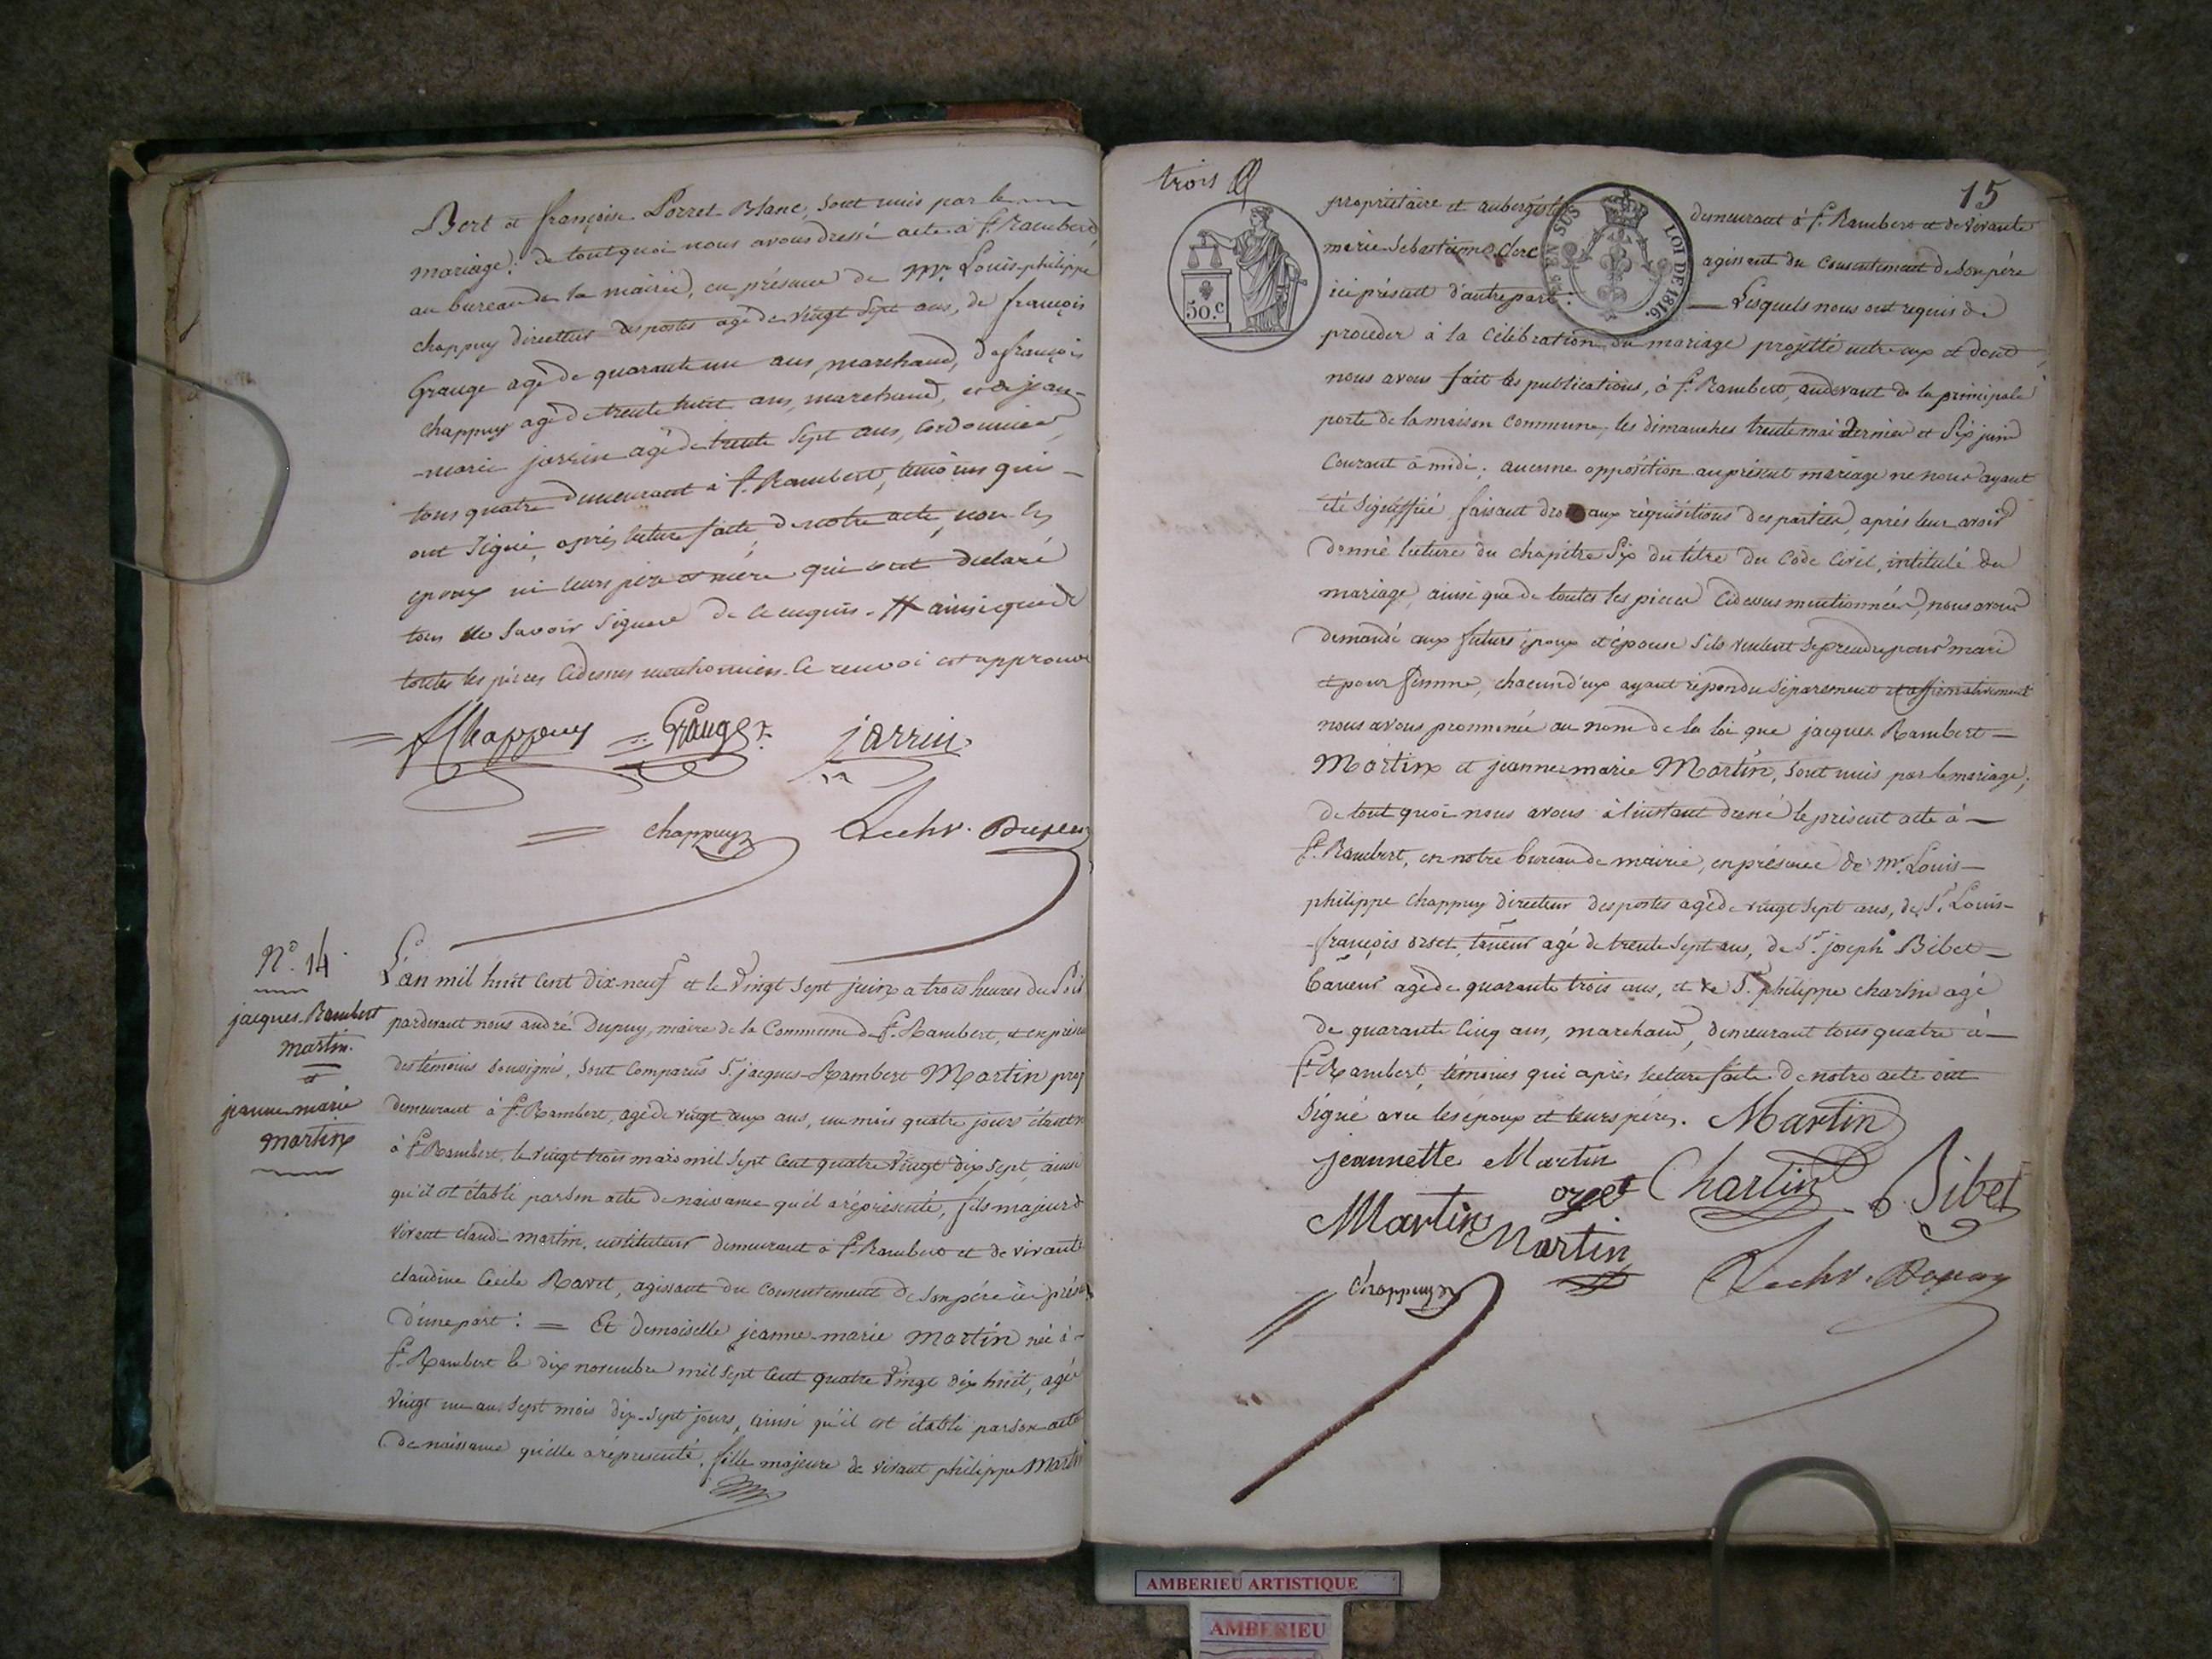 Bert et françoise Porret Blanc, sont unis par le
mariage; de tout quoi nous avons dressé acte à St. Rambert,
au bureau de la mairie, en présence de Mr. Louis-philippe
chappuy directeur des postes agé de vingt sept ans, de françois
Grauge agé de quarante un ans, marchand, de françois
chappuy agé de trente huit ans, marchand, et de jean-
-marie jarrin agé de trente sept ans, cordonnier,
tous quatre demeurant à St. Rambert, témoins qui-
ont signé, après lecture faite de notre acte, non les
epoux ni leurs père et mère qui ont déclaré
tous ne savoir signer de ce enquis. # ainsi que de
toutes les pièces cidessus mentionnées. Ce renvoi est approuvé
Chappuy Grauge jarrin
chappuy Lechr. Dupuy
N°. 14.
jacques-Rambert
Martin.
et
jeanne-marie
Martin
L'an mil huit cent dix-neuf et le vingt sept juin a trois heures du soir
pardevant nous andré Dupuy, maire de la Commune de St. Rambert, et en présen
des témoins soussignés, sont comparus Sr. jacques-Rambert Martin prop
demeurant à St. Rambert, agé de vingt deux ans, un mois quatre jours étant né
à St. Rambert, le vingt trois mai mil sept cent quatre vingt dix sept, ainsi
qu'il est établi par son acte de naissance qu'il a réprésenté, fils majeur de
vivant claude martin, instituteur demeurant à St. Rambert et de vivante
claudine Cecile Ravet, agissant du consentement de son père ici présen
d'une part: = Et demoiselle jeanne-marie Martin née à-
St. Rambert le dix novembre mil sept cent quatre vingt dix huit, agé
vingt un ans sept mois dix-sept jours, ainsi qu'il est établi par son acte
de naissance qu'elle a répresenté, fille majeure de vivant philippe Martin
trois
15
50.C
EN SUS
LOI DE 1816.
propriétaire et aubergiste demeurant à St. Rambert et de vivante
marie-Sebastienne Clerc agissant du consentement de son père
ici présent d'autre part: — Lesquels nous ont requis de
proceder à la célébration du mariage projetté entre eux et dont
nous avons fait les publications, à St. Rambert, audevant de la principale
porte de la maison commune, les dimanches trente mai dernier et six juin
Courant à midi; aucune opposition au présent mariage ne nous ayant
été signiffiée faisant droit aux réquisitions des parties, après leur avoir
donné lecture du chapitre six du titre du Code Civil, intitulé du
mariage, ainsi que de toutes les pieces cidessus mentionnées, nous avons
demandé aux futurs époux et épouse s'ils veulent se prendre pour mari
et pour femme, chacun d'eux ayant répondu séparement et affirmativement
nous avons prononcé au nom de la loi que jacques Rambert —
Martin et jeanne-marie Martin, sont unis par le mariage;
de tout quoi nous avons à l'instant dressé le présent acte à —
St. Rambert, en notre bureau de mairie, en présence de Mr. Louis-
philippe chappuy directeur des postes agé de vingt sept ans, de Sr. Louis-
-françois orset, taneur agé de trente sept ans, de Sr. joseph Bibet —
taneur agé de quarante trois ans, et de Sr. philippe chartin agé
de quarante cinq ans, marchand, demeurant tous quatre à —
St. Rambert, témoins qui après lecture faite de notre acte ont
signé avec les époux et leurs pères. Martin
jeannette Martin
orset Chartin Bibet
Martin Martin
chappuy Lechr. Dupuy
AMBERIEU ARTISTIQUE
AMBERIEU